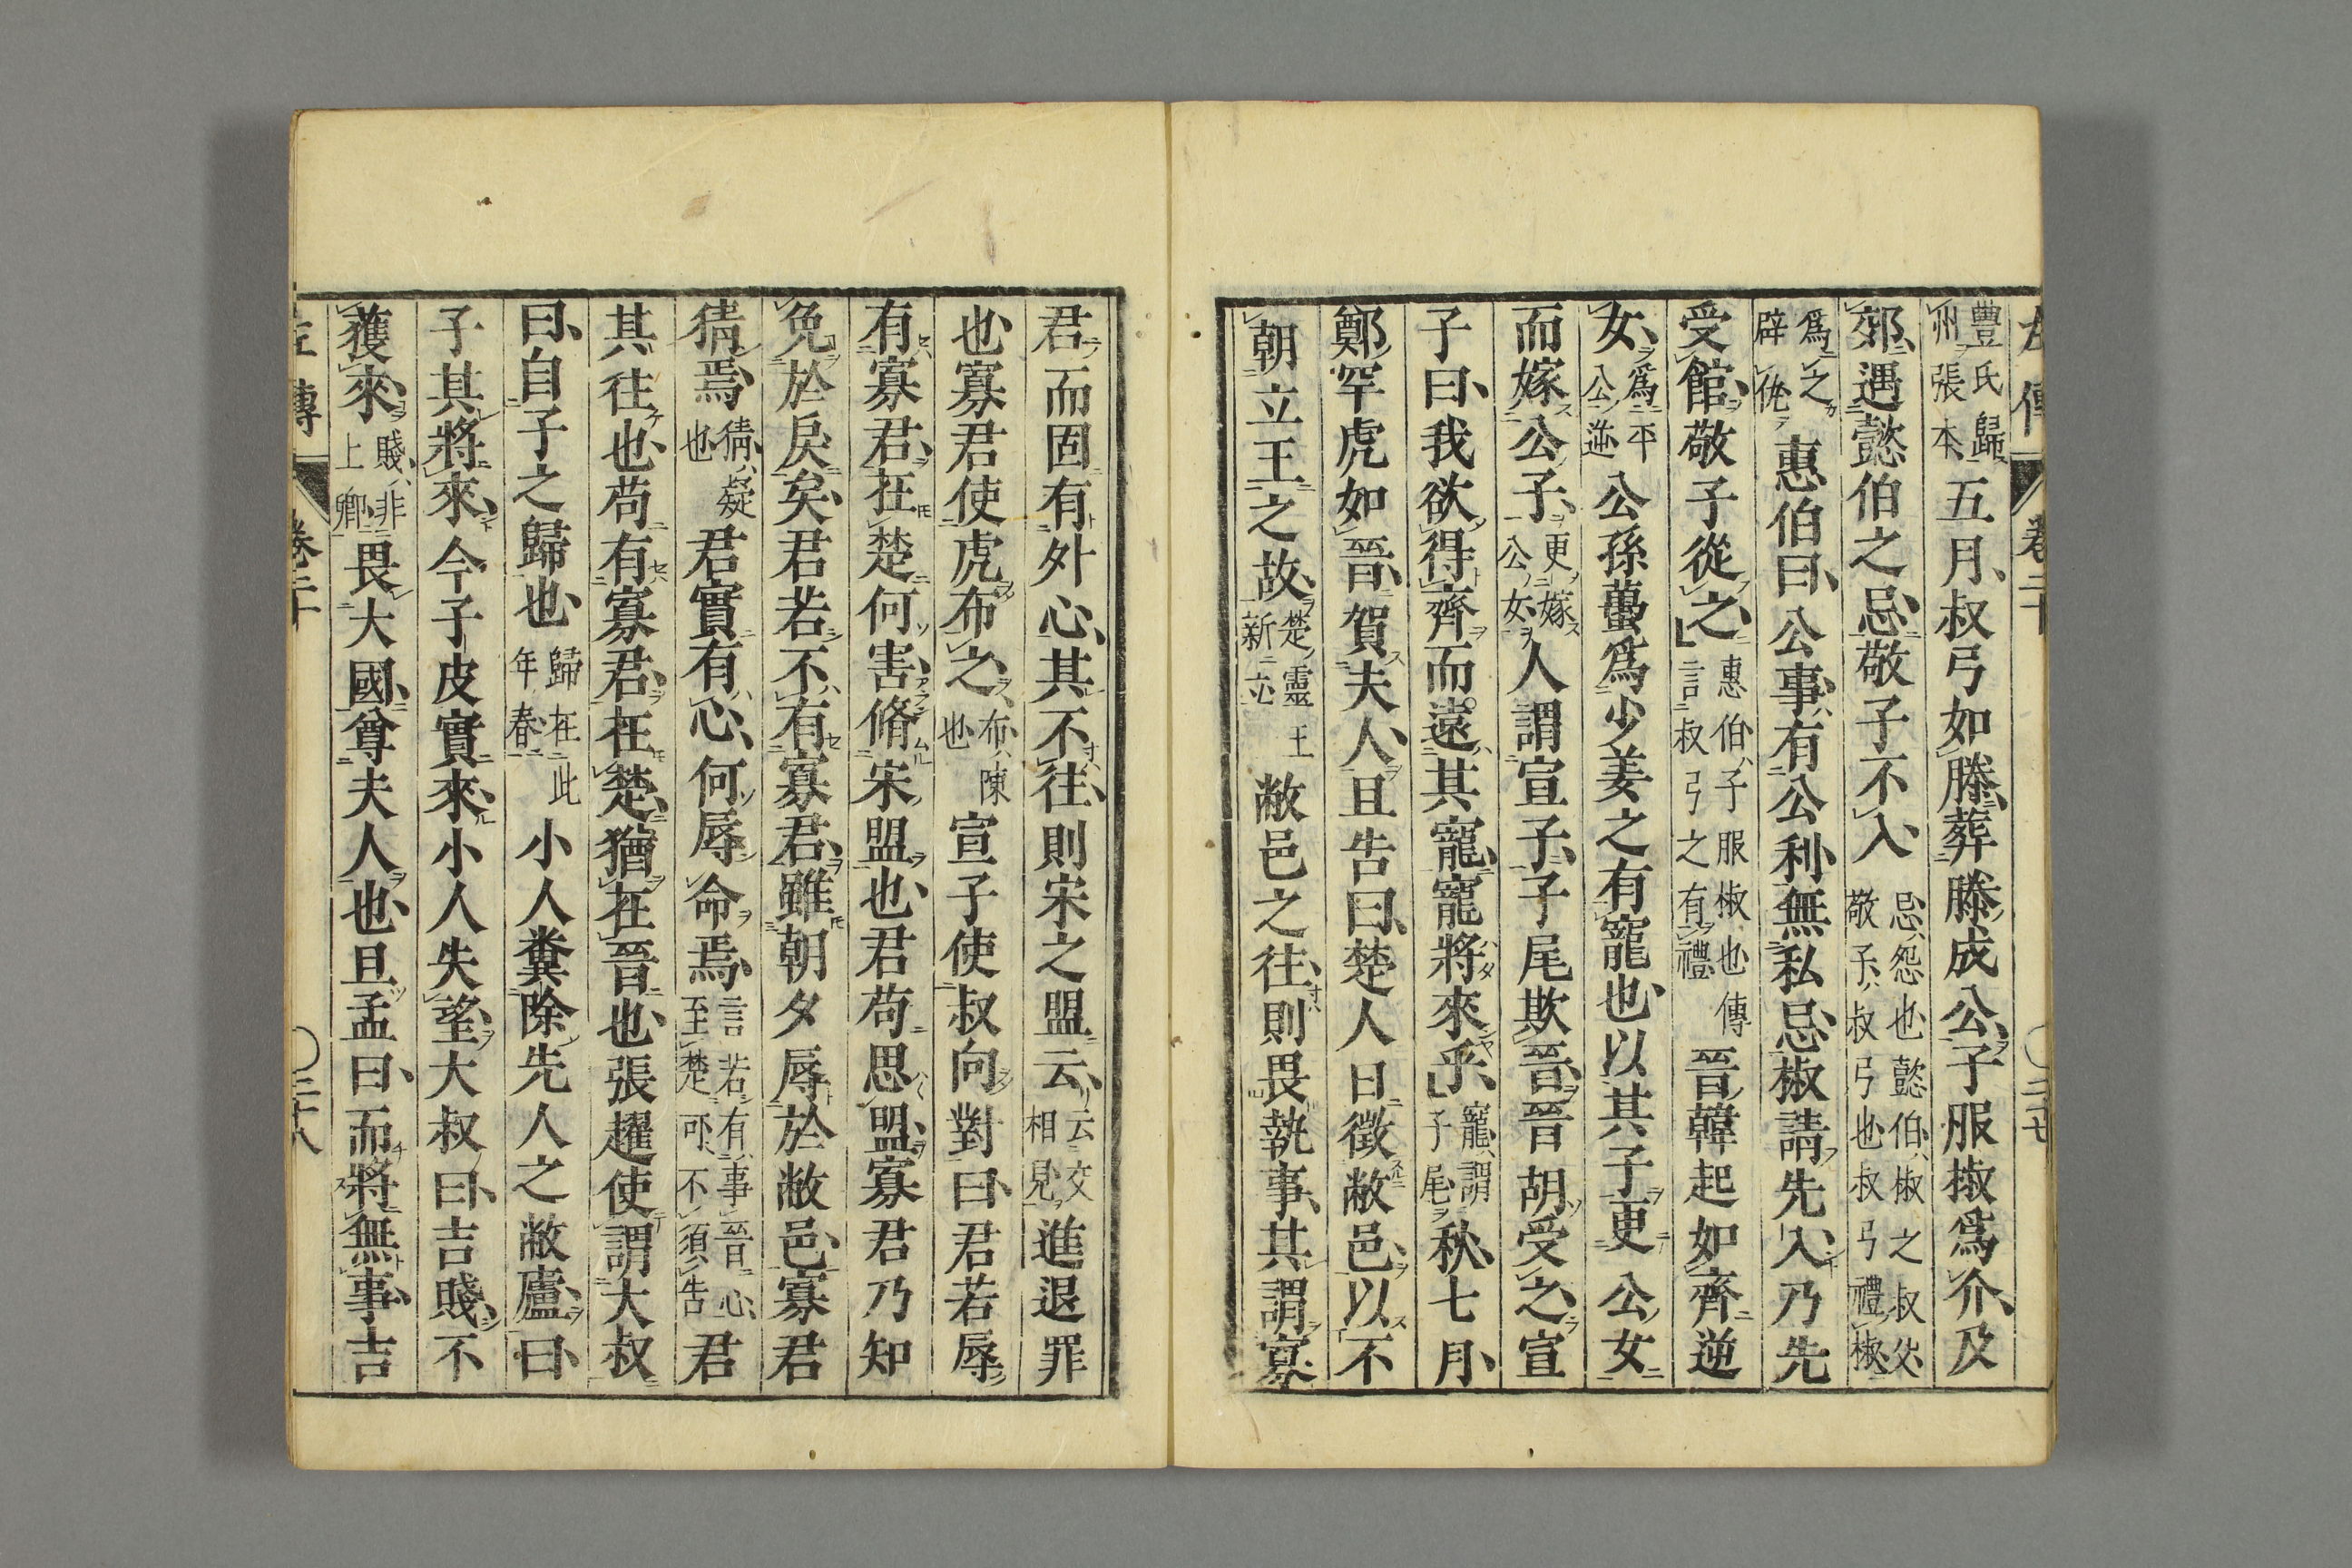 左傳 卷二十 〇二十七
豐氏歸州張本 五月叔弓如滕葬滕成公子服椒爲介及
郊遇懿伯之忌敬子不入 忌怨也懿伯椒之叔父敬子叔弓也叔弓禮椒
爲之辟仇 惠伯曰公事有公利無私忌椒請先入乃先
受館敬子從之 惠伯子服椒也傳言叔弓之有禮 晉韓起如齊逆
女 爲平公逆 公孫蠆爲少姜之有寵也以其子更公女
而嫁公子 更嫁公女 人謂宣子子尾欺晉晉胡受之宣
子曰我欲得齊而遠其寵寵將來乎 寵謂子尾 秋七月
鄭罕虎如晉賀夫人且告曰楚人日徵敝邑以不
朝立王之故 楚靈王新立 敝邑之往則畏執事其謂寡
君而固有外心其不往則宋之盟云 云交相見 進退罪
也寡君使虎布之 布陳也 宣子使叔向對曰君若辱
有寡君在楚何害脩宋盟也君苟思盟寡君乃知
免於戾矣君若不有寡君雖朝夕辱於敝邑寡君
猜焉 猜疑也 君實有心何辱命焉 言若有事晉心至楚可不須告 君
其往也苟有寡君在楚猶在晉也張趯使謂大叔
曰自子之歸也 歸在此年春 小人糞除先人之敝廬曰
子其將來今子皮實來小人失望大叔曰吉賤不
獲來 賤非上卿 畏大國尊夫人也且孟曰而將無事吉
左傳 卷二十 〇二十八